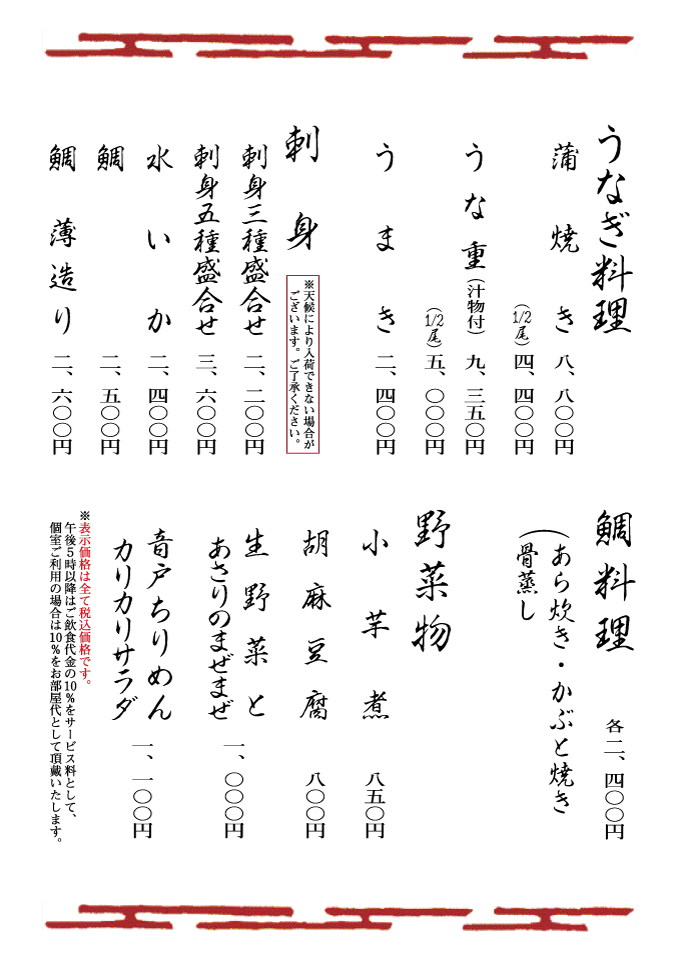 うなぎ料理
蒲焼き 八、八〇〇円
(1/2尾) 四、四〇〇円
うな重(汁物付) 九、三五〇円
(1/2尾) 五、〇〇〇円
うまき 二、四〇〇円
刺身
※天候により入荷できない場合が
ございます。ご了承ください。
刺身三種盛合せ 二、二〇〇円
刺身五種盛合せ 三、六〇〇円
水いか 二、四〇〇円
鯛 二、五〇〇円
鯛薄造り 二、六〇〇円
鯛料理 各二、四〇〇円
(あら炊き・かぶと焼き
骨蒸し
野菜物
小芋煮 八五〇円
胡麻豆腐 八〇〇円
生野菜と
あさりのまぜまぜ 一、〇〇〇円
音戸ちりめん
カリカリサラダ 一、一〇〇円
※表示価格は全て税込価格です。
午後5時以降はご飲食代金の10%をサービス料として、
個室ご利用の場合は10%をお部屋代として頂戴いたします。